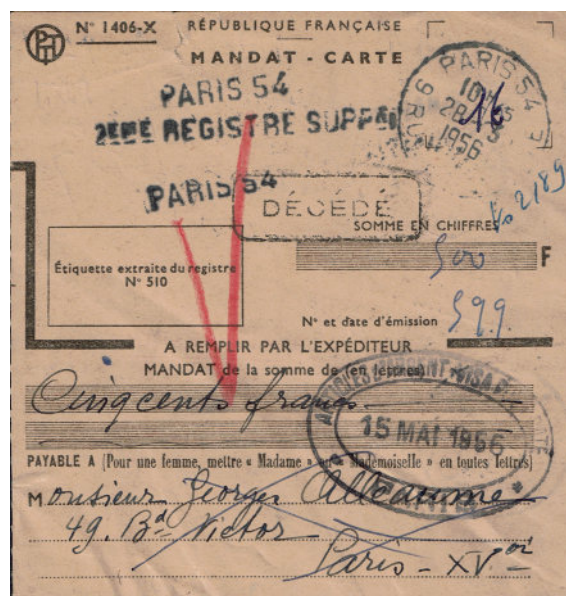 N° 1406-X RÉPUBLIQUE FRANÇAISE
MANDAT - CARTE
PARIS 54
2EME REGISTRE SUPPEL
PARIS 54
10H
28 -
1956
16
PARIS 54
DÉCÉDÉ
2189
SOMME EN CHIFFRES
500 F
Étiquette extraite du registre
N° 510
N° et date d'émission 599.
A REMPLIR PAR L'EXPÉDITEUR
MANDAT de la somme de (en lettres)
Cinq cents francs
15 MAI 1956
PAYABLE A [Pour une femme, mettre « Madame » ou « Mademoiselle » en toutes lettres]
Monsieur Georges Alleaume
49. Bd Victor
Paris - XV